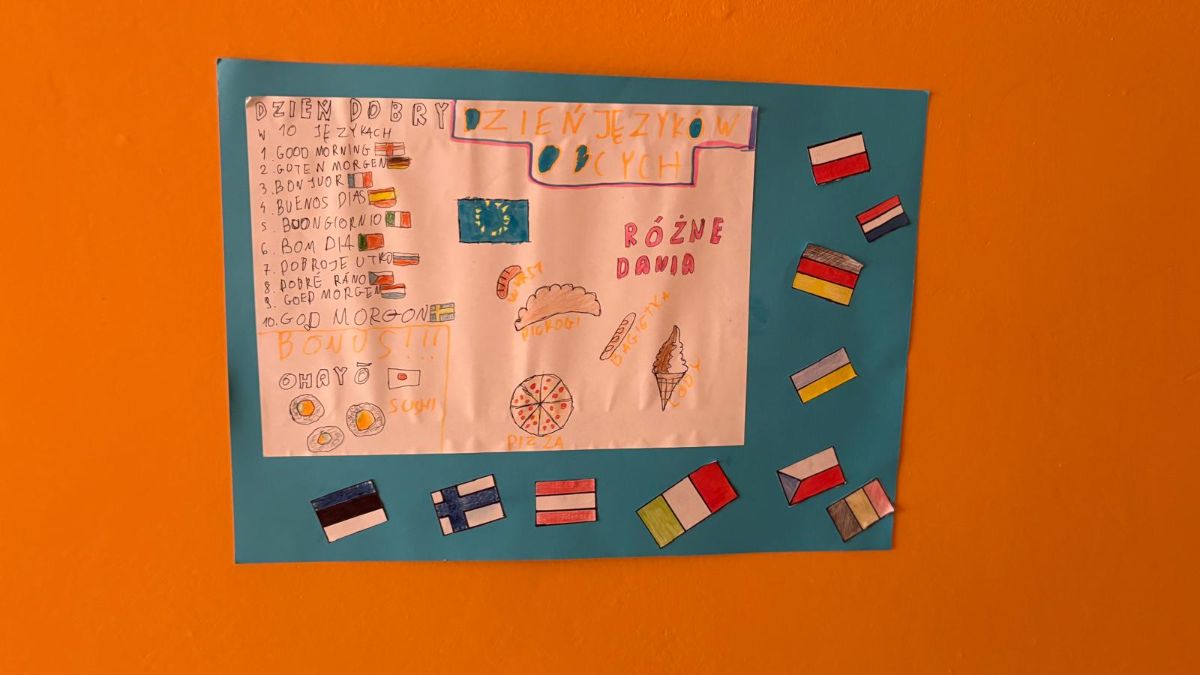 DZIEŃ DOBRY
W 10 JĘZYKACH
1. GOOD MORNING
2. GUTEN MORGEN
3. BONJUOR
4. BUENOS DIAS
5. BUONGIORNIO
6. BOM DIA
7. DOBROJE UTRO
8. DOBRÉ RÁNO
9. GOED MORGEN
10. GOD MORGON
BONUS!!!
OHAYŌ
SUSHI
DZIEŃ JĘZYKÓW
OBCYCH
RÓŻNE
DANIA
WURST
PIEROGI
BAGIETKA
LODY
PIZZA